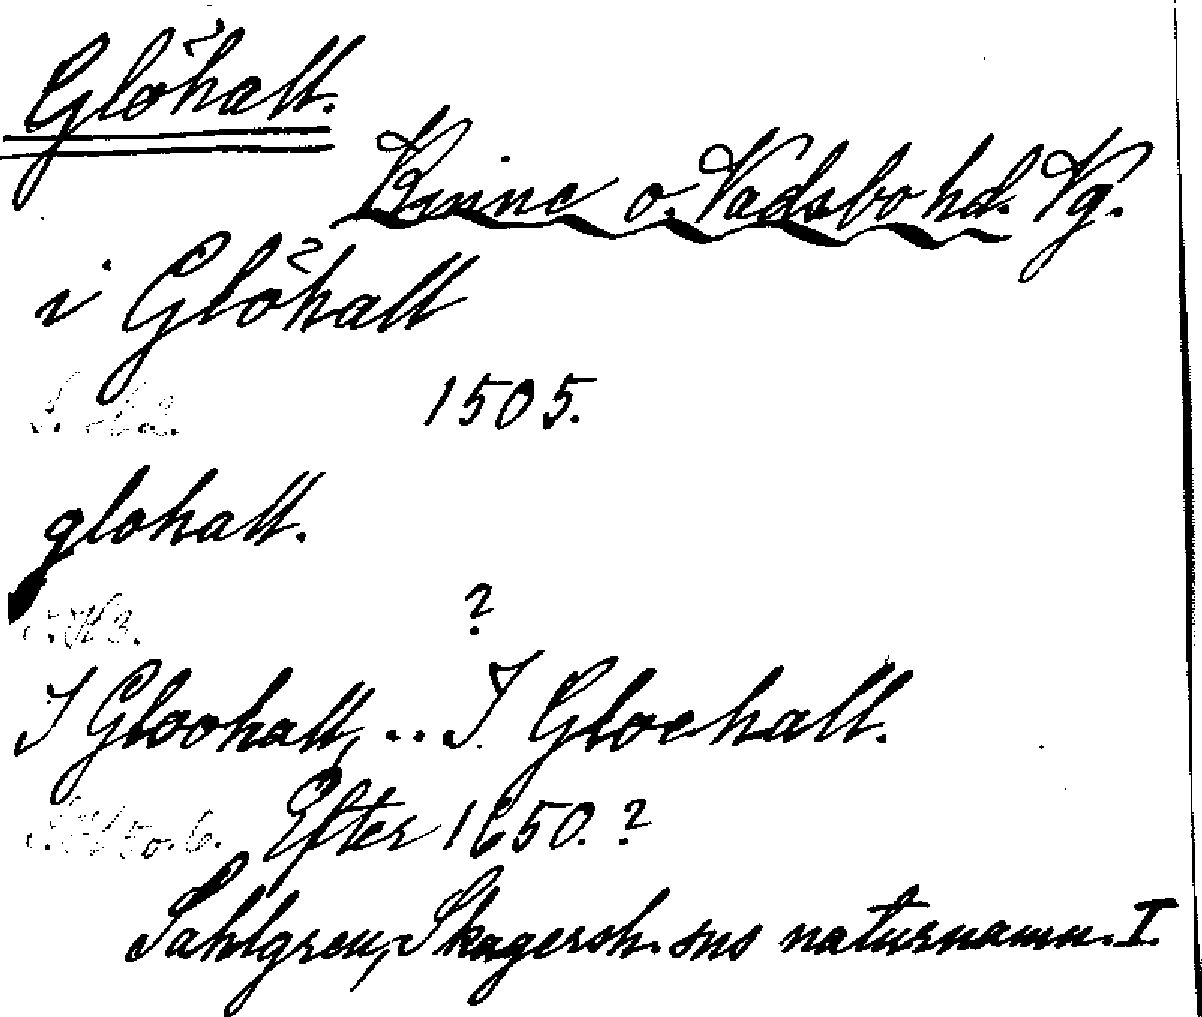 Glöhall.
Kinne o. Vadsbo hd. Vg.
i Glöhall
1505.
glohall.
?
I Gloohall, ... I Gloehall.
Efter 1650.?
Sahlgren, Skagersh. sns naturnamn. I.